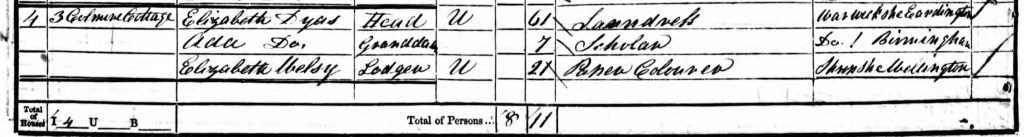 4 3 Colmine Cottage Elizabeth Dyas Head U 61 Laundress Warwickshe Eardington
Ada Do. Granddau 7 Scholar Do. Birmingham
Elizabeth Lodger U 21 Colourer Shropshe Wellington
Total of Houses 4 U B Total of Persons... 8 11